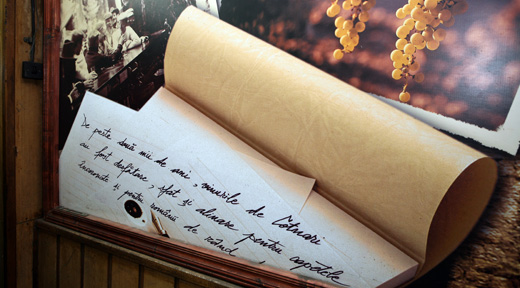 De peste două mii de ani, vinurile de Cotnari
au fost desfătare, sfat și alinare pentru oaspetele
încoronate și pentru românii de rând.